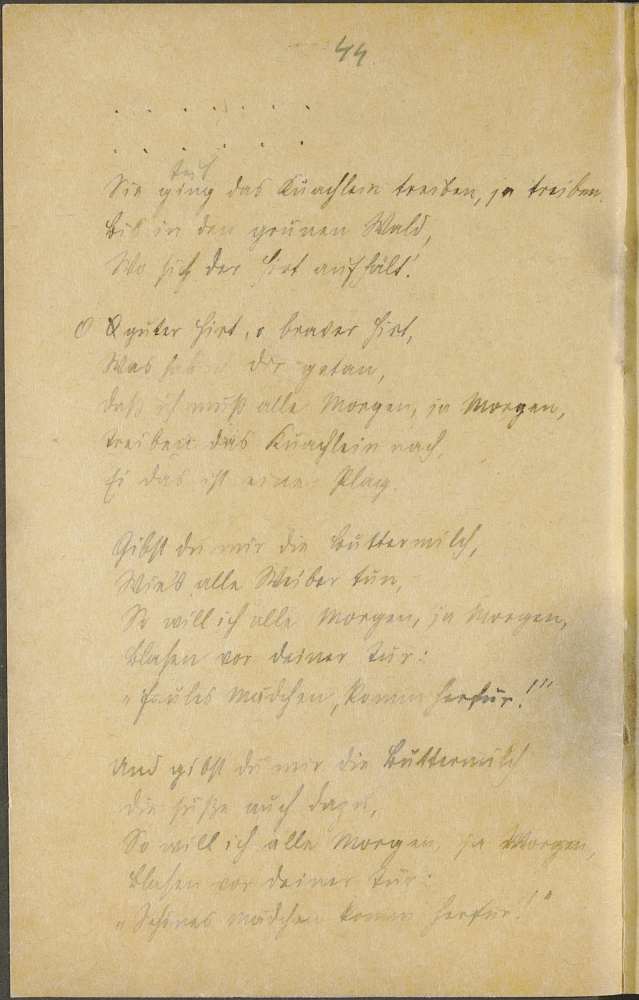 44.
. . . . . . .
. . . . . .
tut
Sie ging das Kuachlein treiben, ja treiben.
Bis in den grünen Wald,
Wo sich der Hirt aufhält.
O guter Hirt, o braver Hirt,
Was hab ich dir getan,
daß ich muß alle Morgen, ja Morgen,
treiben das Kuachlein nach,
Ei das ist eine Plag.
Gibst du mir die Buttermilch,
Wie's alle Weiber tun,
So will ich alle Morgen, ja Morgen,
blasen vor deiner Tür:
"Faules Mädchen, komm herfür!"
Und gibst du mir die Buttermilch
die süße auch dazu,
So will ich alle Morgen, ja Morgen,
blasen vor deiner Tür:
"Schönes Mädchen komm herfür!"